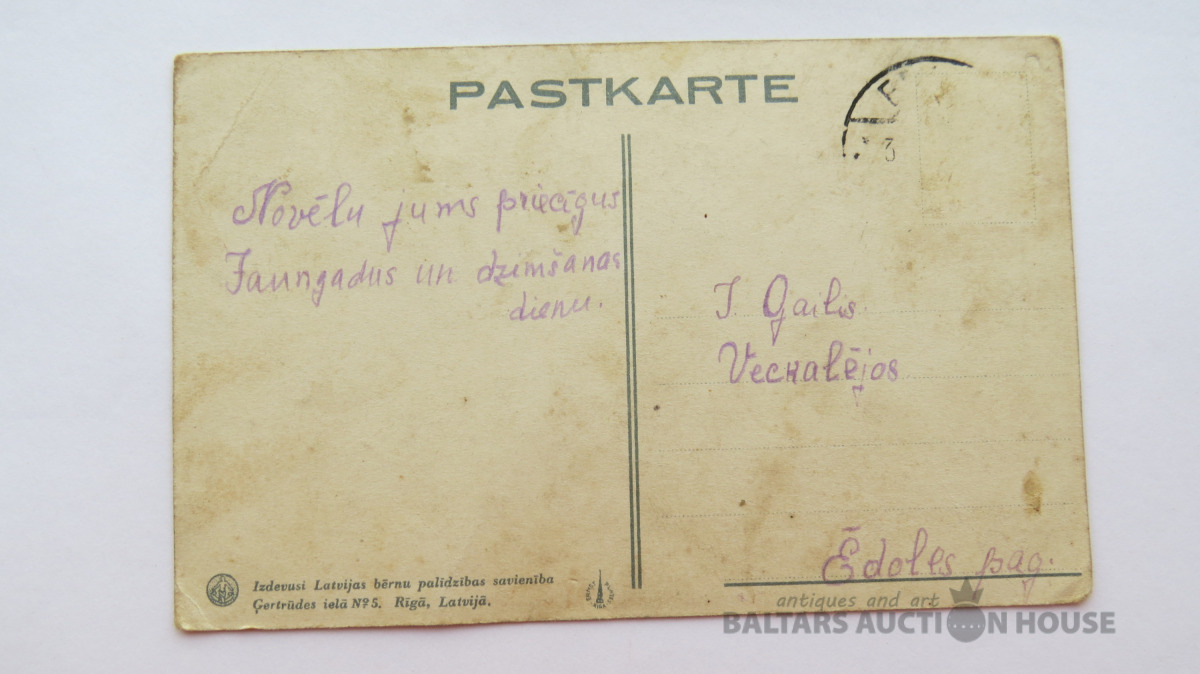 PASTKARTE
Novēlu jums priecīgus
Jaungadus un dzimšanas
dienu.
J Gailis
Veckalējos
Ēdoles pag.
Izdevusi Latvijas bērnu palīdzības savienība
Ģertrūdes ielā Nº 5. Rīgā, Latvijā.
antiques and art
BALTARS AUCTION HOUSE